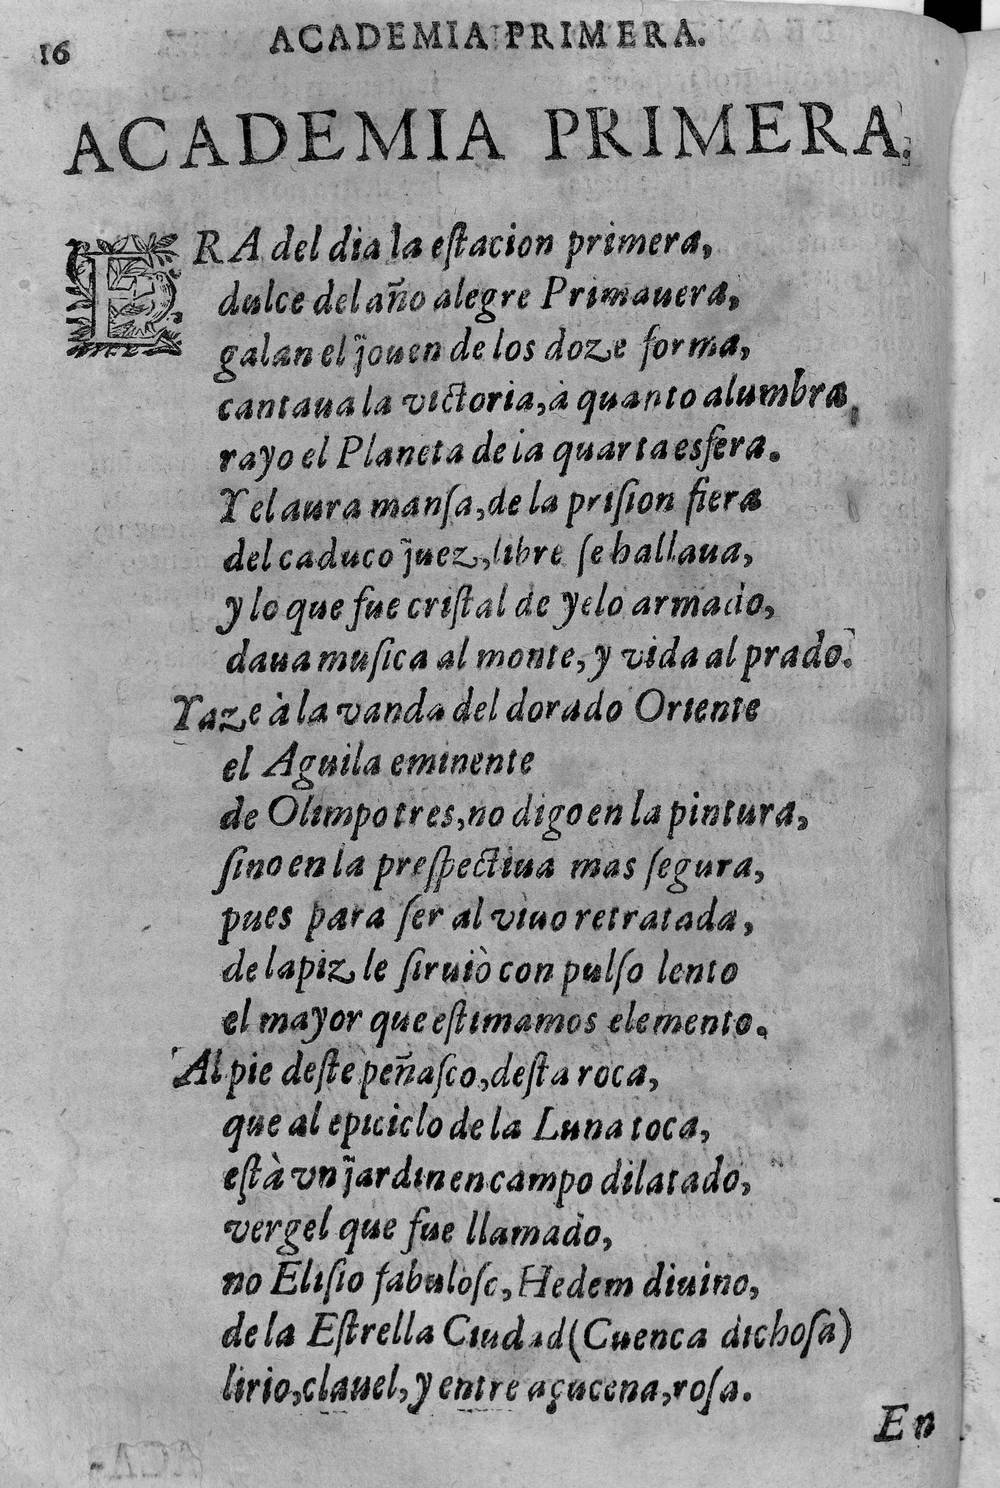 16
ACADEMIA PRIMERA.
ACADEMIA PRIMERA.
ERA del dia la eſtacion primera,
dulce del año alegre Primauera,
galan el jouen de los doze forma,
cantaua la victoria, à quanto alumbra,
rayo el Planeta de la quarta esfera.
Y el aura manſa, de la priſion fiera
del caduco juez, libre ſe hallaua,
y lo que fue criſtal de yelo armado,
daua muſica al monte, y vida al prado.
Yaze à la vanda del dorado Oriente
el Aguila eminente
de Olimpo tres, no digo en la pintura,
ſino en la preſpectiua mas ſegura,
pues para ſer al viuo retratada,
de lapiz le ſiruiò con pulſo lento
el mayor que eſtimamos elemento.
Al pie deſte peñaſco, deſta roca,
que al epiciclo de la Luna toca,
eſtà vn jardin en campo dilatado,
vergel que fue llamado,
no Eliſio fabuloſo, Hedem diuino,
de la Eſtrella Ciudad (Cuenca dichoſa)
lirio, clauel, y entre açucena, roſa.
En